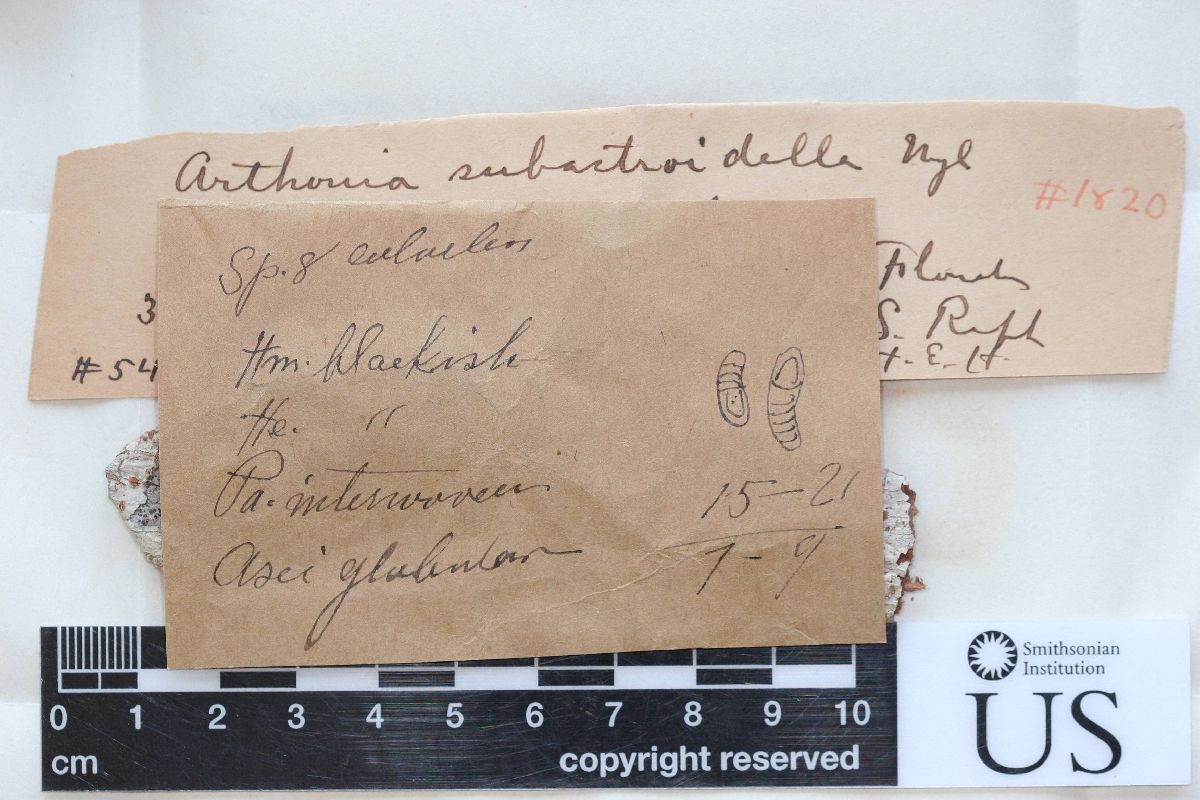 Arthonia subastroidella Nyl
#1820
Florida
3
S. Raph
#54
H. E. H.
Sp. 8 colorless
Hm. blackish
He. "
Pa. interwoven
Asci globular
15-21
7-9
0 1 2 3 4 5 6 7 8 9 10
cm
copyright reserved
Smithsonian
Institution
US